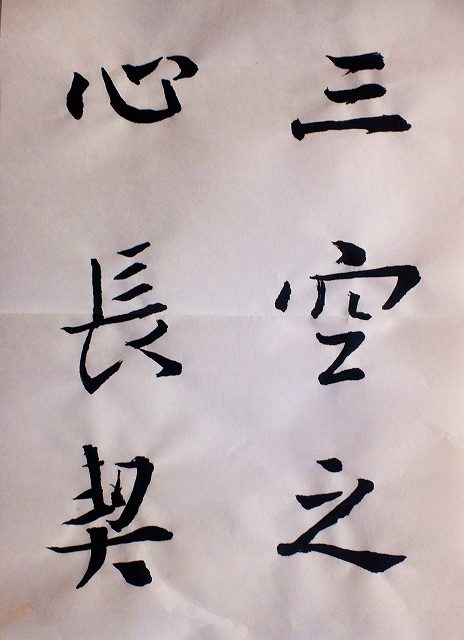 三空之
心長契